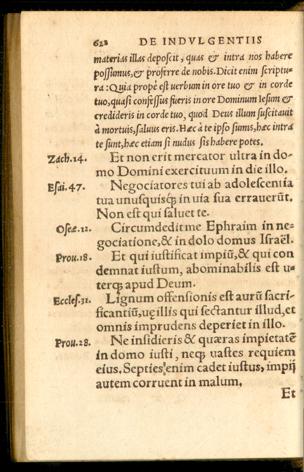 622 DE INDVLGENTIIS
materias illas deposcit, quas & intra nos habere
possumus, & proferre de nobis. Dicit enim scriptu-
ra: Quia propè est uerbum in ore tuo & in corde
tuo, quasi confessus fueris in ore Dominum Iesum &
credideris in corde tuo, quod Deus illum suscitauit
à mortuis, saluus eris. Hæc à te ipso sumis, hæc intra
te sunt, hæc etiam si nudus sis habere potes.
Zach. 14. Et non erit mercator ultra in do-
mo Domini exercituum in die illo.
Esai. 47. Negociatores tui ab adolescentia
tua unusquisq; in uia sua errauerūt.
Non est qui saluet te.
Oseæ. 12. Circumdedit me Ephraim in ne-
gociatione, & in dolo domus Israël.
Prou. 18. Et qui iustificat impiū, & qui con
demnat iustum, abominabilis est u-
terq; apud Deum.
Eccles. 31. Lignum offensionis est aurū sacri-
ficantiū, uę illis qui sectantur illud, et
omnis imprudens deperiet in illo.
Prou. 28. Ne insidieris & quæras impietatē
in domo iusti, neq; uastes requiem
eius. Septies enim cadet iustus, impij
autem corruent in malum.
Et